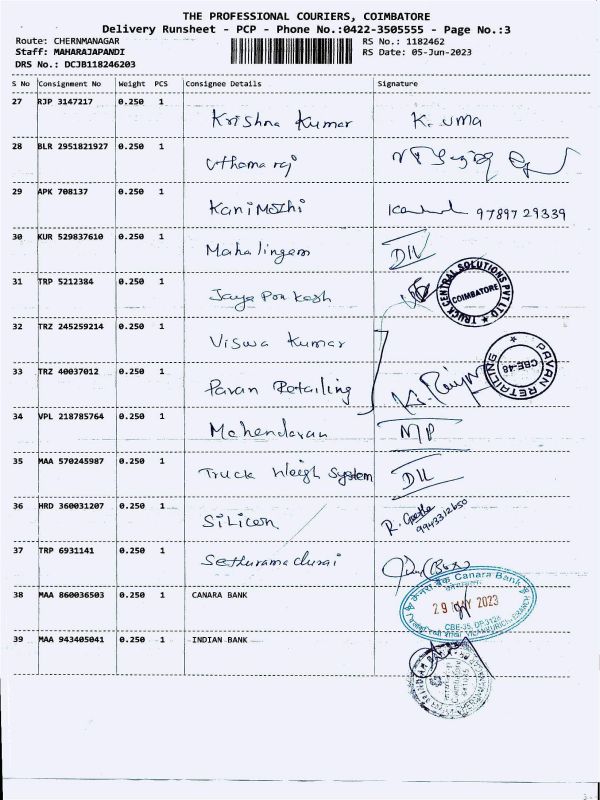 THE PROFESSIONAL COURIERS, COIMBATORE
Delivery Runsheet - PCP - Phone No.:0422-3505555 - Page No.:3
Route: CHERNMANAGAR RS No.: 1182462
Staff: MAHARAJAPANDI RS Date: 05-Jun-2023
DRS No.: DCJB118246203
S No Consignment No Weight PCS Consignee Details Signature
27 RJP 3147217 0.250 1
Krishna Kumar K. uma
28 BLR 2951821927 0.250 1
Uthama raj
29 APK 708137 0.250 1
Kanimozhi 97897 29339
30 KUR 529837610 0.250 1
Mahalingam DIL
31 TRP 5212384 0.250 1
Jaya Prakash
TRUCK CENTRAL SOLUTIONS PVT LTD
COIMBATORE
32 TRZ 245259214 0.250 1
Viswa Kumar
33 TRZ 40037012 0.250 1
Pavan Retailing
PAVAN RETAILING
CBE-48
34 VPL 218785764 0.250 1
Mahendaran NIP
35 MAA 570245987 0.250 1
Truck Weigh System DIL
36 HRD 360031207 0.250 1
Silicon R. Geetha
9943312650
37 TRP 6931141 0.250 1
Sethuramadurai
38 MAA 860036503 0.250 1 CANARA BANK
Canara Bank
29 MAY 2023
CBE-35, DP 3128
39 MAA 943405041 0.250 1 INDIAN BANK
INDIAN BANK